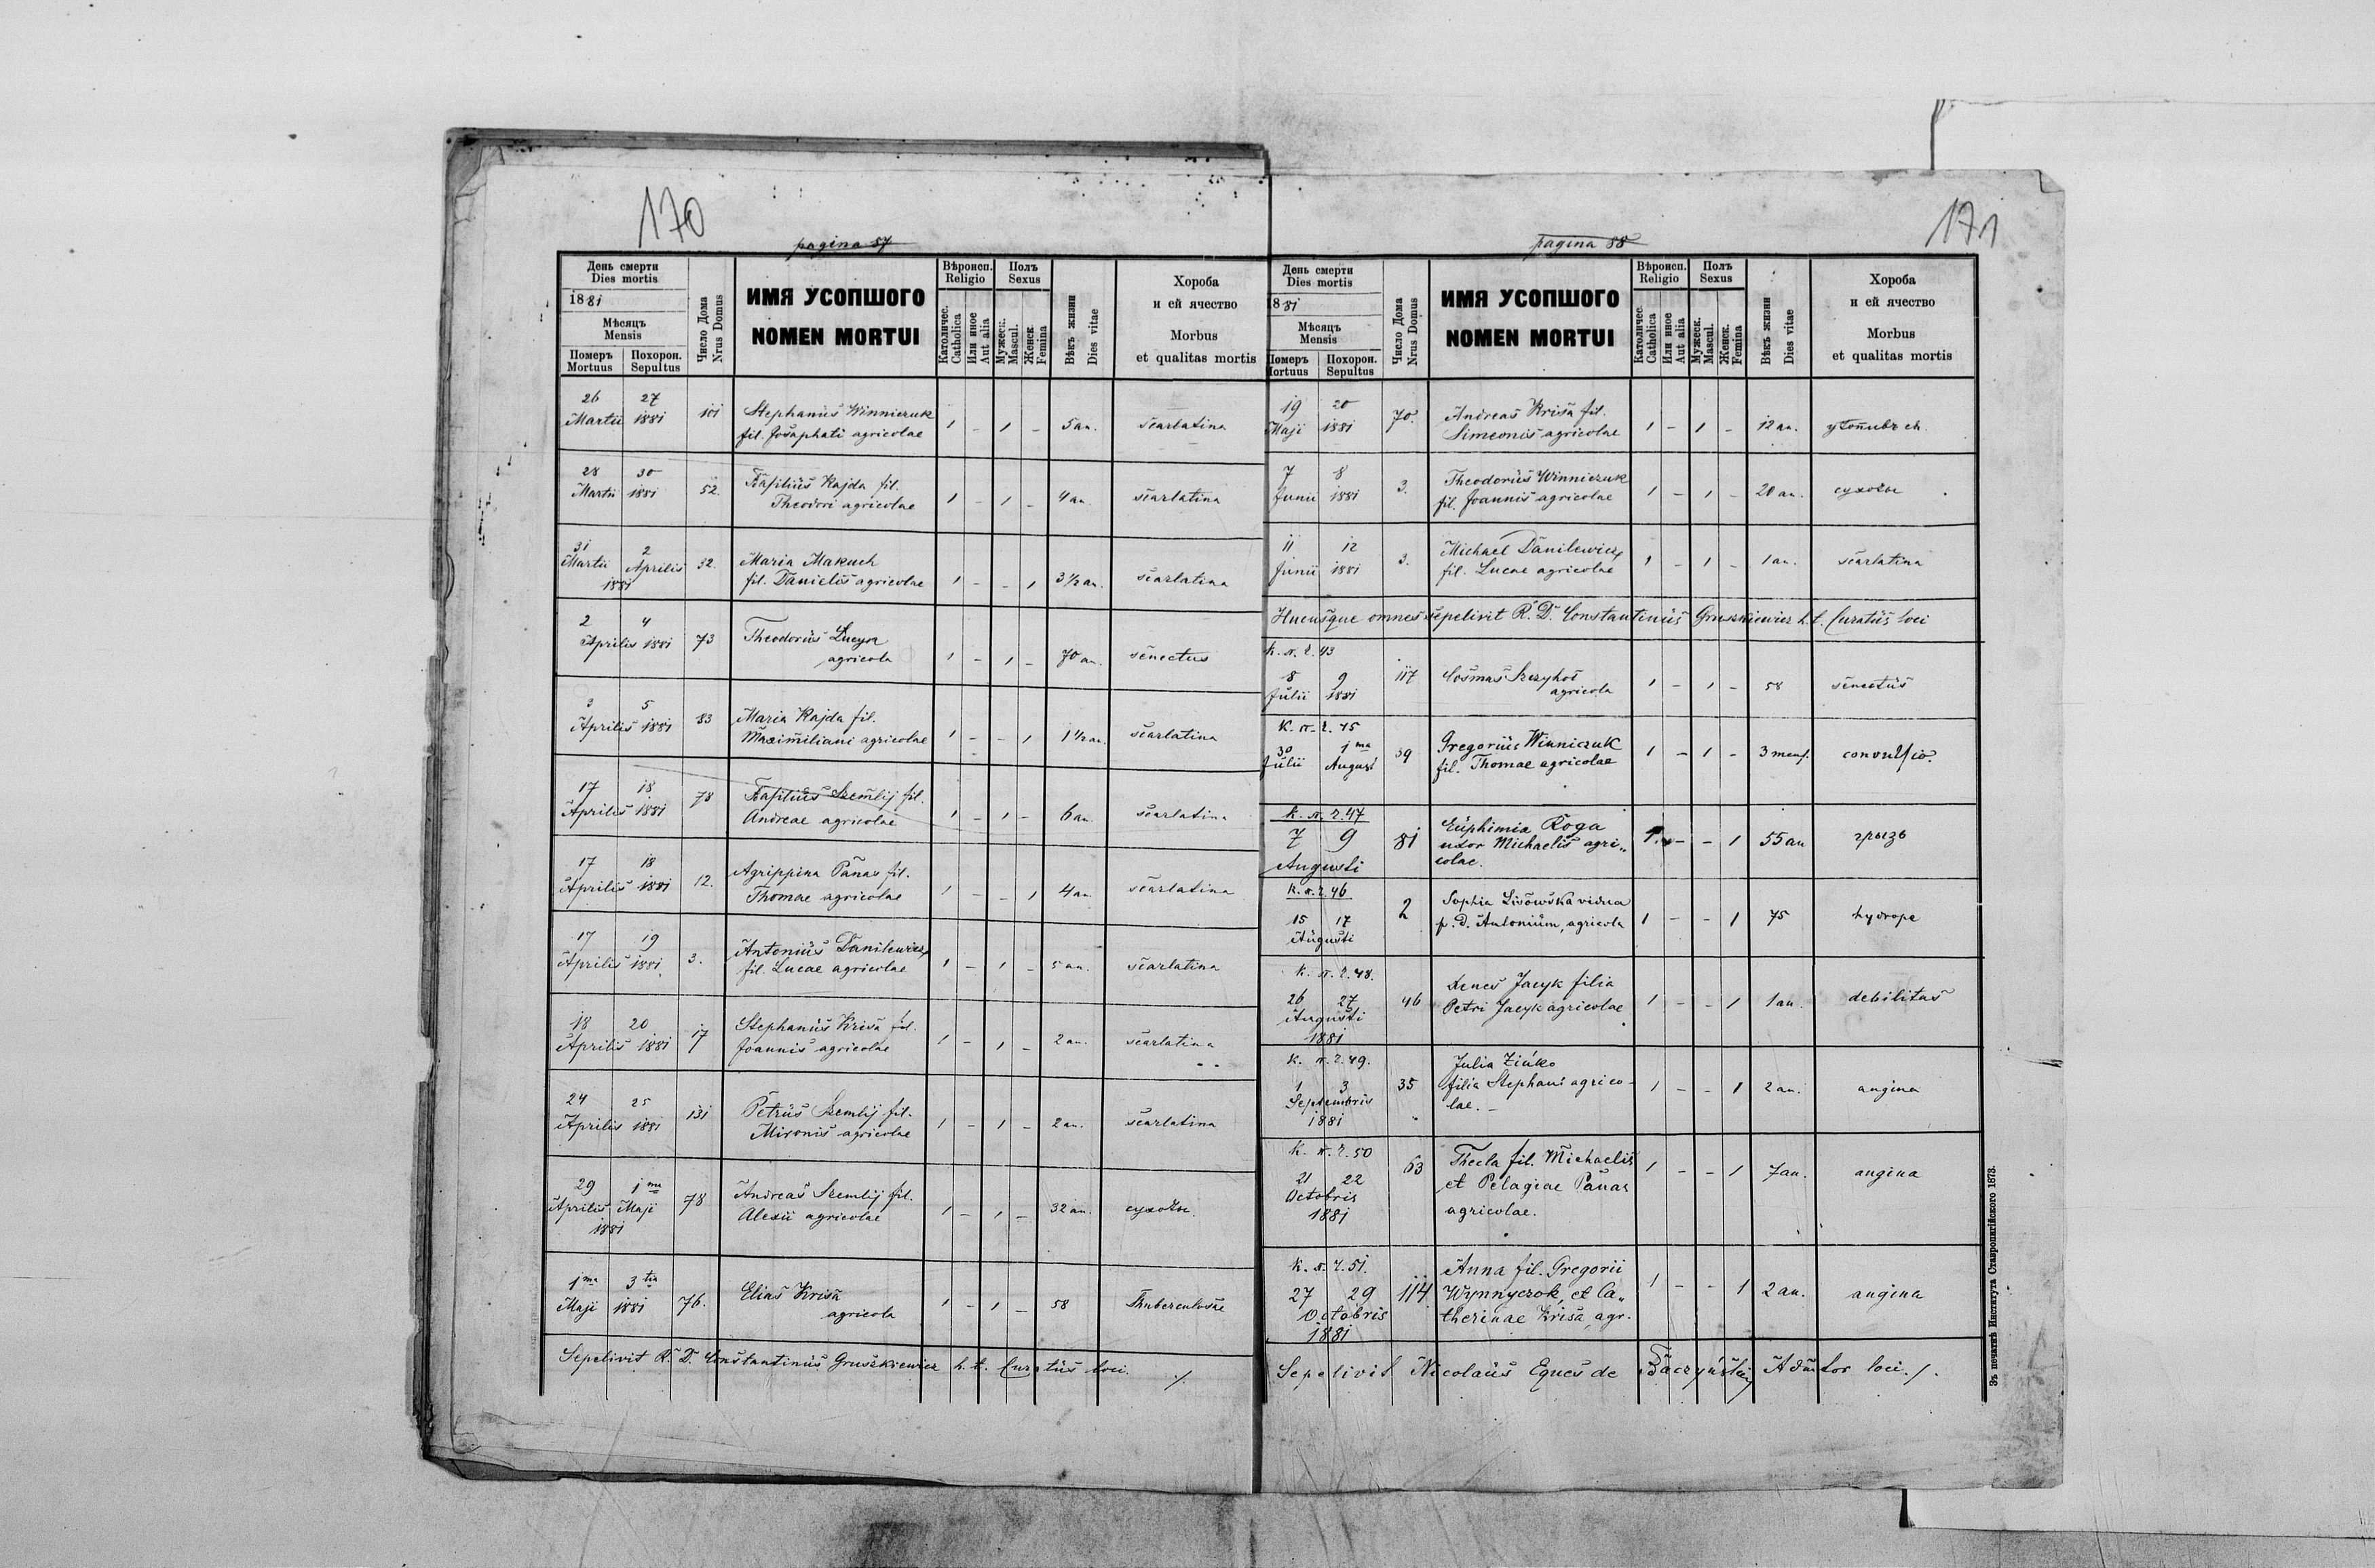 170
pagina 57
День смерти
Dies mortis
1881
Мѣсяцъ
Mensis
Померъ Похорон.
Mortuus Sepultus
Число Дома
Nrus Domus
ИМЯ УСОПШОГО
NOMEN MORTUI
Вѣроисп.
Religio
Католичес.
Catholica
Или иное
Aut alia
Полъ
Sexus
Мужеск.
Mascul.
Женск.
Femina
Вѣкъ жизни
Dies vitae
Хороба
и ей ячество
Morbus
et qualitas mortis
26 27
Martii 1881 101 Stephanus Winniczuk
fil. Josaphati agricolae 1 - 1 - 5 an. scarlatina
28 30
Martii 1881 52. Basilius Kajda fil.
Theodori agricolae 1 - 1 - 4 an. scarlatina
31 2
Martii Aprilis 32. Maria Makuch
1881 fil. Danielis agricolae 1 - - 1 3 1/2 an. scarlatina
2 4
Aprilis 1881 73 Theodorus
agricola 1 - 1 - 70 an. senectus
3 5
Aprilis 1881 83 Maria Kajda fil.
Maximiliani agricolae 1 - - 1 1 1/2 an. scarlatina
17 18
Aprilis 1881 78 Basilius Szemlij fil.
Andreae agricolae 1 - 1 - 6 an scarlatina
17 18
Aprilis 1881 12. Agrippina Panas fil.
Thomae agricolae 1 - - 1 4 an. scarlatina
17 19
Aprilis 1881 3. Antonius Danilewicz
fil. Lucae agricolae 1 - 1 - 5 an. scarlatina
18 20
Aprilis 1881 17 Stephanus Krisa fil.
Joannis agricolae 1 - 1 - 2 an. scarlatina
24 25
Aprilis 1881 131 Petrus Szemlij fil.
Mironis agricolae 1 - 1 - 2 an. scarlatina
29 1ma
Aprilis Maji 78 Andreas Szemlij fil.
1881 Alexii agricolae 1 - 1 - 32 an. сухоты
1ma 3tia
Maji 1881 76. Elias Krisa
agricola 1 - 1 - 58
Sepelivit R. D. Constantinus Gruszkiewicz h. t. Curatus loci. ./.
171
pagina 58
День смерти
Dies mortis
1881
Мѣсяцъ
Mensis
Померъ Похорон.
Mortuus Sepultus
Число Дома
Nrus Domus
ИМЯ УСОПШОГО
NOMEN MORTUI
Вѣроисп.
Religio
Католичес.
Catholica
Или иное
Aut alia
Полъ
Sexus
Мужеск.
Mascul.
Женск.
Femina
Вѣкъ жизни
Dies vitae
Хороба
и ей ячество
Morbus
et qualitas mortis
19 20
Maji 1881 70. Andreas Krisa fil.
Simeonis agricolae 1 - 1 - 12 an.
7 8
Junii 1881 3. Theodorus Winniczuk
fil. Joannis agricolae 1 - 1 - 20 an. сухоты
11 12
Junii 1881 3. Michael Danilewicz
fil. Lucae agricolae 1 - 1 - 1 an. scarlatina
Hucusque omnes sepelivit R. D. Constantinus Gruszkiewicz h. t. Curatus loci
K. п. г. 43
8 9
Julii 1881 117 Cosmas
agricola 1 - 1 - 58 senectus
K. п. г. 45
30 1ma
Julii August 39 Gregorius Winniczuk
fil. Thomae agricolae 1 - 1 - 3 mens. convulsio.
K. п. г. 47
7 9 81 Euphimia Roga
Augusti uxor Michaelis agri„
colae. 1 - - 1 55 an грызь
K. п. г. 46
15 17 2 Sophia Lisowska vidua
Augusti p. d. Antonium, agricola 1 - - 1 75 hydrope
K. п. г. 48.
26 27 46 Jacyk filia
Augusti Petri Jacyk agricolae 1 - - 1 1 an. debilitas
1881
K. п. г. 49.
1 3 35 Julia Zińko
Septembris filia Stephani agrico-
1881 lae. - 1 - - 1 2 an. angina
K. п. г. 50
21 22 63 Thecla fil. Michaelis
Octobris et Pelagiae Panas
1881 agricolae. 1 - - 1 7 an. angina
K. п. г. 51.
27 29 114 Anna fil. Gregorii
Octobris Wynnyczok, et Ca„
1881 therinae Krisa, agr. 1 - - 1 2 an. angina
Sepelivit Nicolaus Eques de Adm̃tor loci ./.
Зъ печатнѣ Института Ставропигійского 1873.